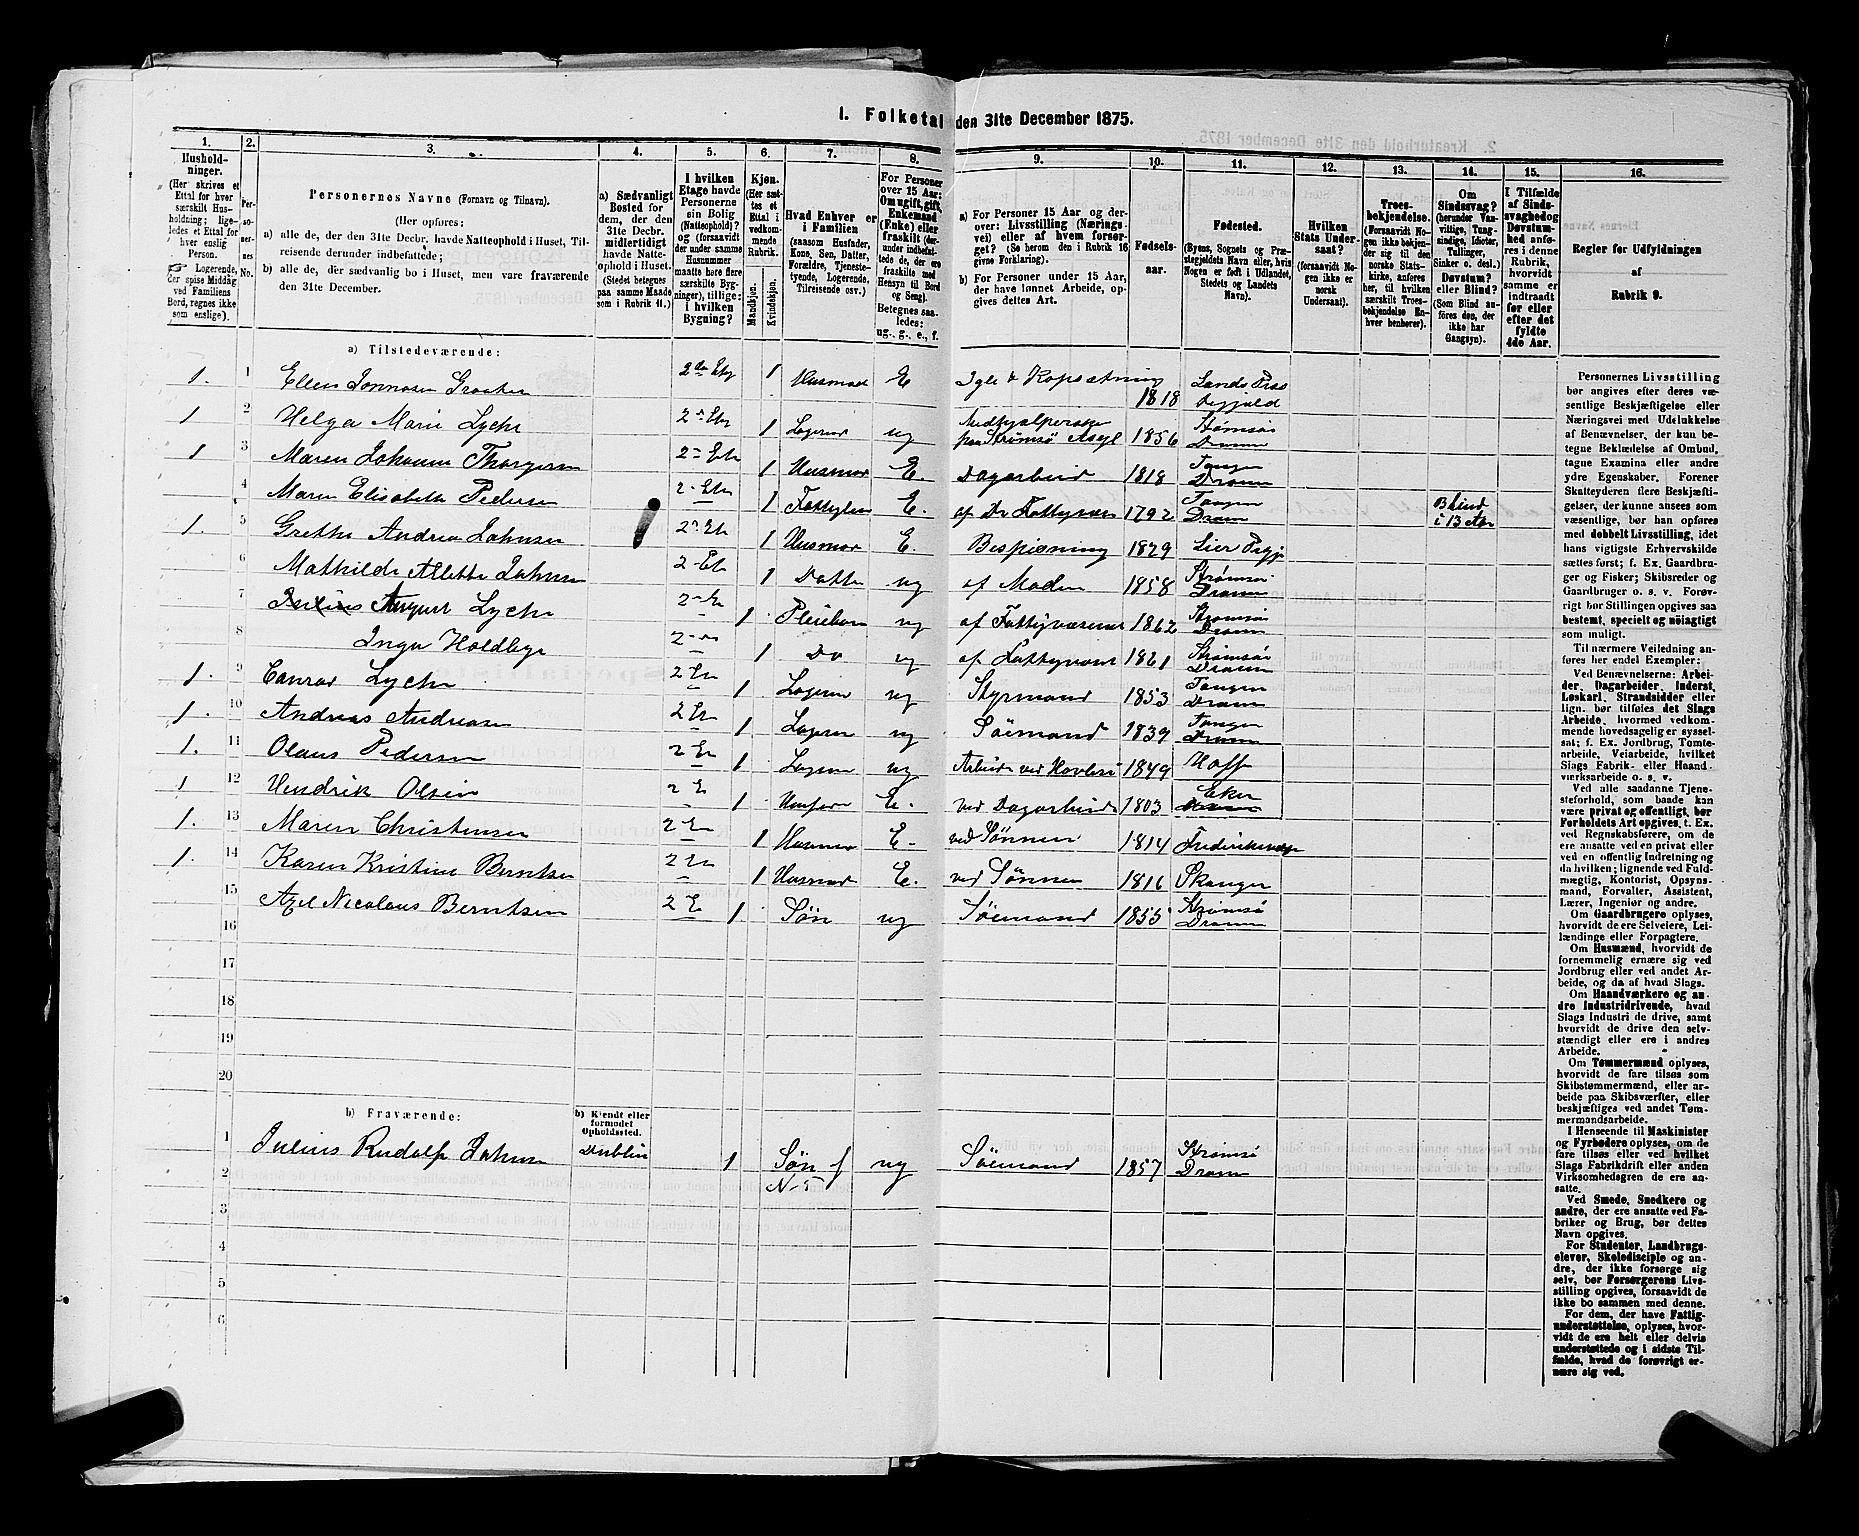 1. Folketal den 31te December 1875.
1. 2. 3. 4. 5. 6. 7. 8. 9. 10. 11. 12. 13. 14. 15. 16.
Husholdninger.
(Her skrives et
Ettal for hver
særskilt Husholdning;
ligeledes et Ettal for
hver enslig
Person.
☞ Logerende,
der spise Middag
ved Familiens
Bord, regnes ikke
som enslige).
Personernes No.
Personernes Navne (Fornavn og Tilnavn).
(Her opføres:
a) alle de, der den 31te Decbr. havde Natteophold i Huset, Tilreisende derunder indbefattede;
b) alle de, der sædvanlig bo i Huset, men vare fraværende
den 31te December.
a) Sædvanligt
Bosted for
dem, der den
31te Decbr.
midlertidigt
havde Natteophold i Huset.
(Stedet betegnes
paa samme Maade
som i Rubrik 11.)
I hvilken
Etage havde
Personerne
sin Bolig
(Natteophold)?
og (forsaavidt
der under samme
Husnummer
maatte høre flere
særskilte Bygninger), tillige:
i hvilken
Bygning?
Kjøn.
(Her sættes et
Ettal i
vedkommende
Rubrik.
Mandkjøn.
Kvindekjøn.
Hvad Enhver er
i Familien
(saasom Husfader,
Kone, Søn, Datter,
Forældre, Tjenestetyende, Logerende,
Tilreisende osv.)
For Personer
over 15 Aar:
Om ugift, gift,
Enkemand
(Enke) eller
fraskilt
Betegnes saaledes:
ug., g., e., f.
a) For Personer 15 Aar og derover: Livsstilling (Næringsvei) eller af hvem forsørget? (Se herom den i Rubrik 16
givne Forklaring).
b) For Personer under 15 Aar,
der have lønnet Arbeide, opgives dettes Art.
Fødselsaar.
Fødested.
(Byens, Sognets og Præstegjeldets Navn eller, hvis
Nogen er født i Udlandet,
Stedets og Landets
Navn).
Hvilken
Stats Undersaat?
(forsaavidt Nogen ikke er
norsk
Undersaat).
Troesbekjendelse.
(Forsaavidt Nogen ikke bekjender sig til den
norske Statskirke, anføres
her, til hvilken
særskilt Troesbekjendelse Enhver henhører).
Om
Sindssvag?
(herunder Vanvittige, Tungsindige, Idioter,
Tullinger,
Sinker o. desl.)
Døvstum?
eller Blind?
(Som Blind anføres den, der
ikke har
Gangsyn).
I Tilfælde
af Sindssvaghed og
Døvstumhed anføres i denne
Rubrik,
hvorvidt
samme er
indtraadt
før eller
efter det
fyldte
4de Aar.
Regler for Udfyldningen
af
Rubrik 9.
a) Tilstedeværende:
1. 1 Ellen 2den Etg 1 Husmod E 1818 Lands Præstegjeld
1 2 Helga Marie Lyche 2 Etg 1 Logerende ug paa Strømsø Asyl 1856 Strømsø Dramm
1 3 Maren Johanne Thorgersen 2 Et 1 Husmor E. Dagarbeid 1818 Tangen Dramm
4 Maren Elisabeth Pedersen 2 Et 1 Fattiglem E. af Dr Fattigvæsen 1792 Tangen Dramm Blind i 13 Aar
1. 5 Grethe Andrea Johnsen 2 Et 1 Husmor E. Bespisning 1829 Lier Præstgj
6 Mathilde Alette Johnsen 2 Et 1 Datter ug af Moderen 1858 Strømsø Dramm
7 August Lyche 2 Et 1 Pleiebarn ug af Fattigvæsenet 1862 Strømsø Dramm
8 Inga Holdbye 2 1 Do ug af Fattigvæsenet 1861 Strømsø Dramm
1. 9 Conrad Lyche 2 Et 1 Logerende ug Styrmand 1853 Tangen Dramm
1. 10 Andreas Andreasen 2 Et 1 Logerende ug Søemand 1839 Tangen Dramm
1. 11 Olaus Pedersen 2 Et 1 Logerende ug Arbeide ved Høvleri 1849 Hoff
1 12 Hendrik Olsen 2 E 1 Husfar E. ved Dagarbeide 1803 Eker
1. 13 Maren Christensen 2 Et 1 Husmor E. ved Sønnen 1814 Frederiksværn
1. 14 Karen Kristine Berntsen 2 Et 1 Husmor E. ved Sønnen 1816 Skanger
15 Axel Nicolaus Berntsen 2 E 1. Søn ug Søemand 1855 Strømsø Dramm
16
17
18
19
20
b) Fraværende:
b) Kjendt eller
formodet
Opholdssted.
1 Julius Rudolf Johnsen Dublin 1 Søn f N 5 ug Søemand 1857 Strømsø Dramm
2
3
4
5
6
Personernes Livsstilling
bør angives efter deres væsentlige Beskjæftigelse eller
Næringsvei med Udelukkelse
af Benævnelser, der kun betegne Beklædelse af Ombud,
tagne Examina eller andre
ydre Egenskaber. Forener
Skatteyderen flere Beskjæftigelser, der kunne ansees som
væsentlige, bør han opføres
med dobbelt Livsstilling, idet
hans vigtigste Erhvervskilde
sættes først; f. Ex. Gaardbruger og Fisker; Skibsreder og
Gaardbruger o. s. v. Forøvrigt bør Stillingen opgives saa
bestemt, specielt og nøiagtigt
som muligt.
Til nærmere Veiledning anføres her endel Exempler:
Ved Benævnelserne: Arbeider, Dagarbeider, Inderst,
Løskarl, Strandsidder eller
lign. bør tilføies det Slags
Arbeide, hvormed vedkommende hovedsagelig er sysselsat; f. Ex. Jordbrug, Tomtearbeide, Veiarbeide, hvilket
Slags Fabrik- eller Haandværksarbeide o. s. v.
Ved alle saadanne Tjenesteforhold, som baade kan
være privat og offentligt, bør
Forholdets Art opgives, f. Ex.
ved Regnskabsførere, om de
ere ansatte ved en privat eller
ved en offentlig Indretning og
da hvilken; lignende ved Fuldmægtig, Kontorist, Opsynsmand, Forvalter, Assistent,
Lærer, Ingeniør og andre.
Om Gaardbrugere oplyses,
hvorvidt de ere Selveiere, Leilændinge eller Forpagtere.
Om Husmænd, hvorvidt de
fornemmelig ernære sig ved
Jordbrug eller ved andet Arbeide, og da af hvad Slags.
Om Haandværkere og andre Industridrivende, hvad
Slags Industri de drive, samt
hvorvidt de drive den selvstændigt eller ere i andres
Arbeide.
Om Tømmermænd oplyses,
hvorvidt de fare tilsøs som
Skibstømmermænd, eller arbeide paa Skibsværfter, eller
beskjæftiges ved andet Tømmermandsarbeide.
I Henseende til Maskinister
og Fyrbødere oplyses, om de
fare tilsøs eller ved hvilket
Slags Fabrikdrift eller anden
Virksomhedsgren de ere ansatte.
Ved Smede, Snedkere og
andre, der ere ansatte ved Fabriker og Brug, bør dettes
Navn opgives.
For Studenter, Landbrugselever, Skoledisciple og andre, der ikke forsørge sig
selv, bør Forsørgerens Livsstilling opgives, forsaavidt de
ikke bo sammen med denne.
For dem, der have Fattigunderstøttelse, oplyses, hvorvidt de ere helt eller delvis
understøttede og i sidste Tilfælde, hvad de forøvrigt ernære sig ved.